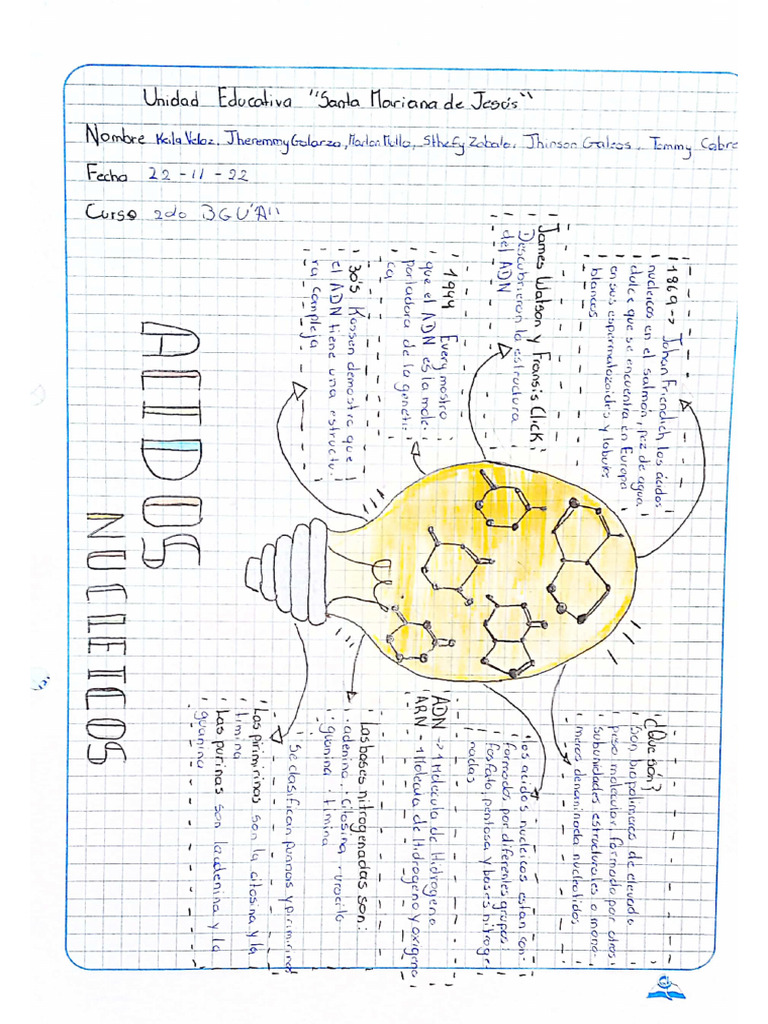 Unidad Educativa "Santa Mariana de Jesús"
Nombre Keila Veloz, Jheremmy Galarza, Marlon Mullo, Sthefy Zabala, Jhinson Galeas, Tommy Cabre
Fecha 22-11-22
Curso 2do BGU "A"
ACIDOS
NUCLEICOS
1869 → Johan Friendich los ácidos
nucleicos en el salmon, pez de agua
dulce que se encuentra en Europa
en sus espermatozoides y lobulos
blancos
James Watson y Fransis Click:
Descubrieron la estructura
del ADN
1944 Every mostro
que el ADN es la mole-
portadora de la geneti-
ca
30's Kossen demostro que
el ADN tiene una estructu-
ra compleja
¿Que són?
Son biopolimeros de elevado
peso molecular, formado por otros
subunidades estructurales o mono-
meros denominada nucleotidos
los acidos nucleicos estan con-
formados por diferentes grupos:
fosfato, pentosa y bases nitroge
nadas
ADN → 1 Molecula de Hidrogeno
ARN - 1 Molecula de Hidrogeno y oxigeno
Las bases nitrogenadas son:
adenina · citosina · uracilo
guanina · timina
Se clasifican purinas y pirimirinas
Las pirimirinas son la citosina y la
timina
Las purinas son la adenina y la
guanina